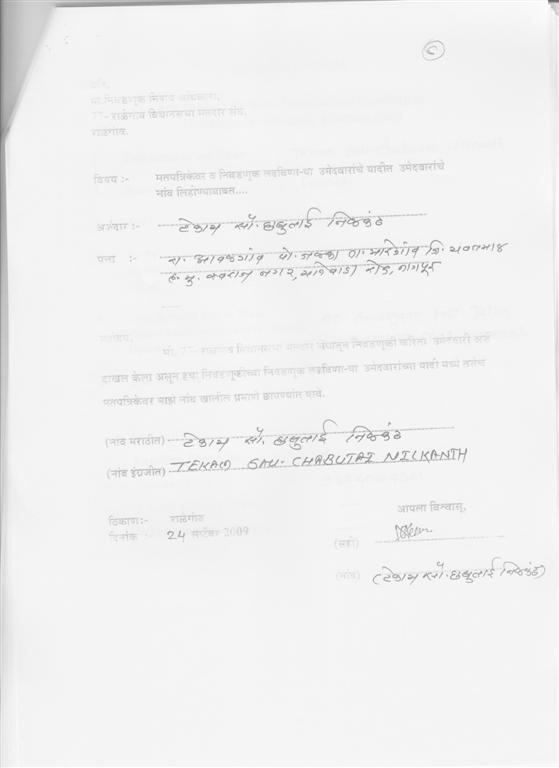 प्रति,
मा.निवडणूक निर्णय अधिकारी,
77- राळेगांव विधानसभा मतदार संघ,
राळेगांव.
विषय :- मतपत्रिकेवर व निवडणूक लढविणा-या उमेदवारांचे यादीत उमेदवारांचे
नांव लिहीण्याबाबत....
अर्जदार :- टेकाम सौ. छाबुताई निळकंठ
पत्ता :- रा. आवळगांव पो. ता. मारेगांव जि. यवतमाळ
ह. मु. स्वराज नगर, मानेवाडा रोड, नागपूर
महोदय,
मी, 77- राळेगांव विधानसभा मतदार संघातून निवडणूकी करिता उमेदवारी अर्ज
दाखल केला असून हया निवडणूकीच्या निवडणूक लढविणा-या उमेदवारांच्या यादी मध्ये तसेच
मतपत्रिकेवर माझे नांव खालील प्रमाणे छापण्यांत यावे.
(नांव मराठीत) टेकाम सौ. छाबुताई निळकंठ
(नांव इंग्रजीत) TEKAM SAU. CHABUTAI NILKANTH
आपला विश्वासू,
ठिकाण:- राळेगांव
दिनांक :- 24 सप्टेंबर 2009
(सही)
(नांव) (टेकाम सौ. छाबुताई निळकंठ)